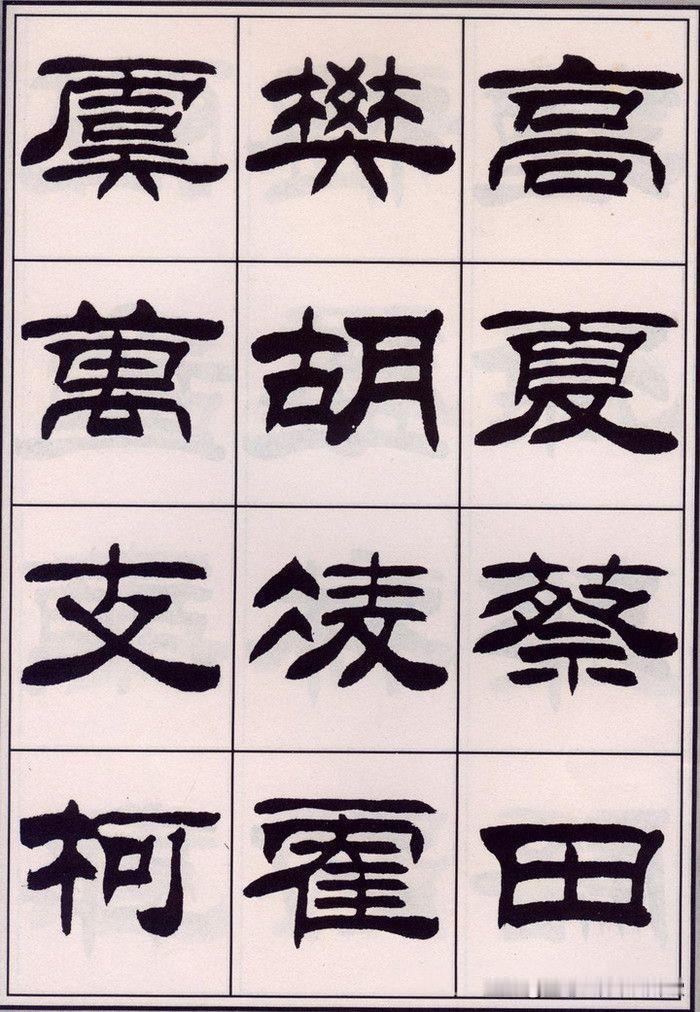 高夏蔡田
樊胡凌霍
虞萬支柯